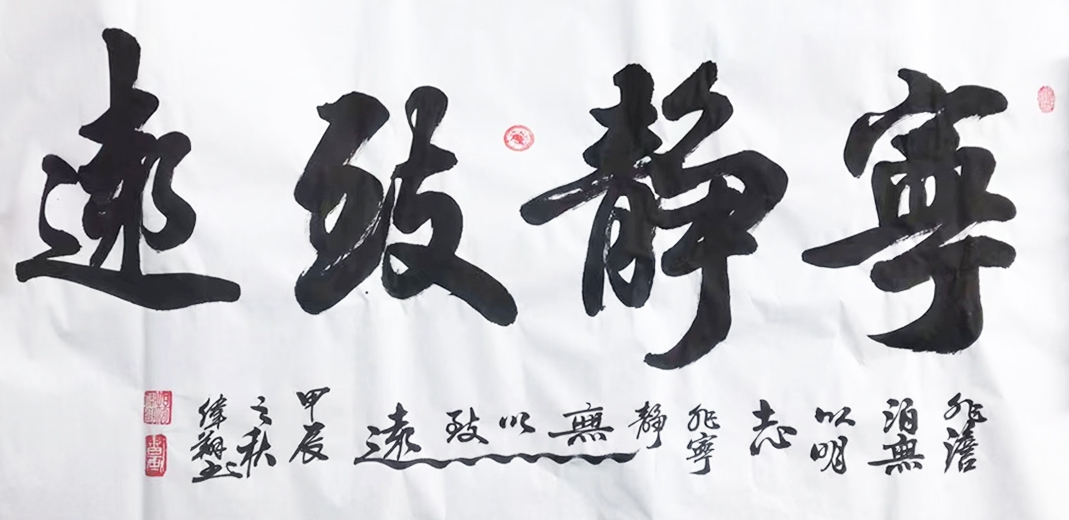 寧靜致遠
非澹
泊無
以明
志
非寧
靜
無
以
致
遠
甲辰
之秋
偉翔書